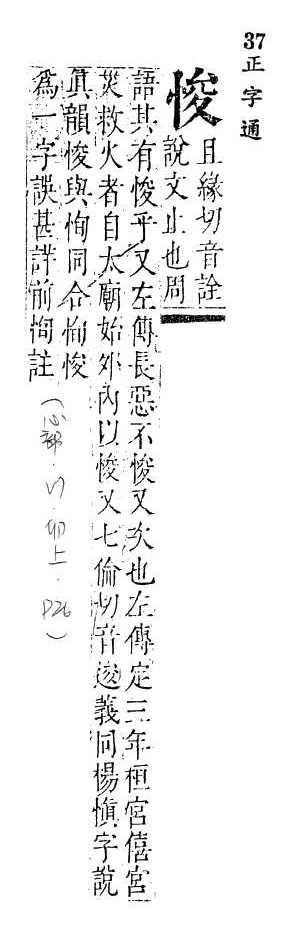 37正字通
悛
且緣切音詮
說文止也周
語其有悛乎又左傳長惡不悛又次也左傳定三年桓宮僖宮
災救火者自大廟始外內以悛又七倫切音逡義同楊慎字說
眞韻悛與恂同合恂悛
為一字誤甚詳前恂註
(心部.卯上.P26)